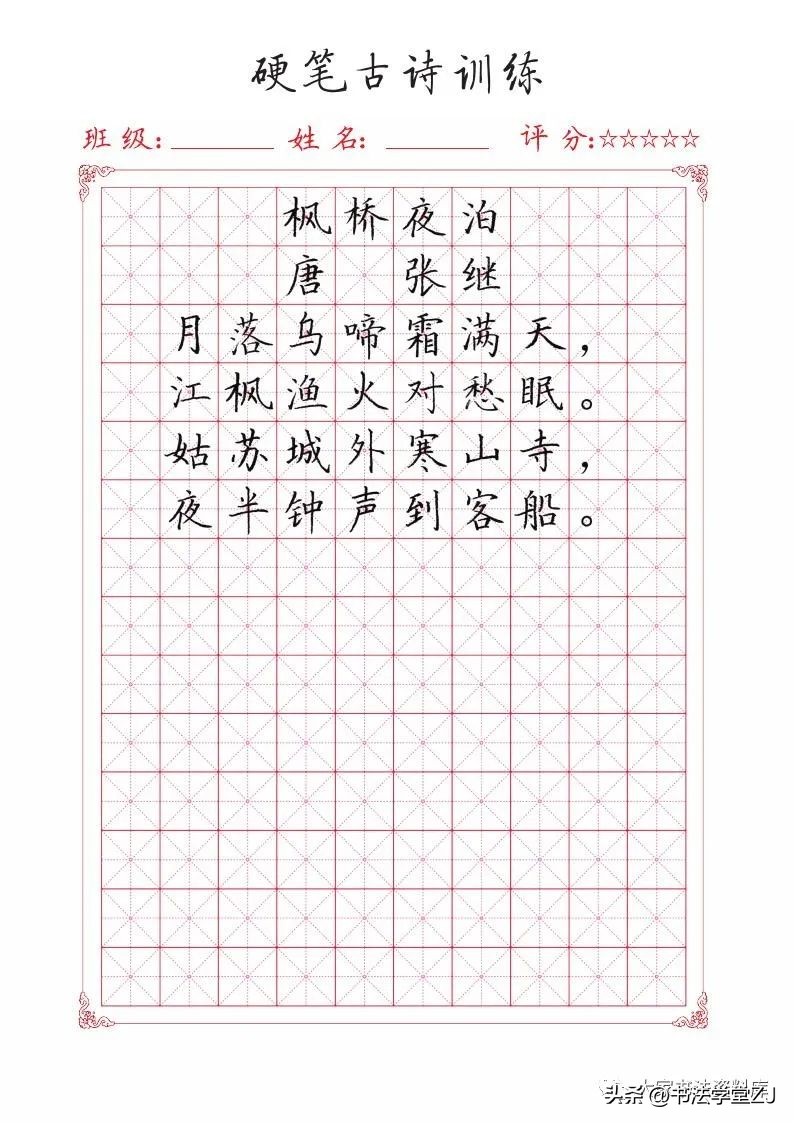 硬笔古诗训练
班级: 姓名: 评分:☆☆☆☆☆
枫桥夜泊
唐 张继
月落乌啼霜满天，
江枫渔火对愁眠。
姑苏城外寒山寺，
夜半钟声到客船。
大家书法资料库
头条@书法学堂ZJ